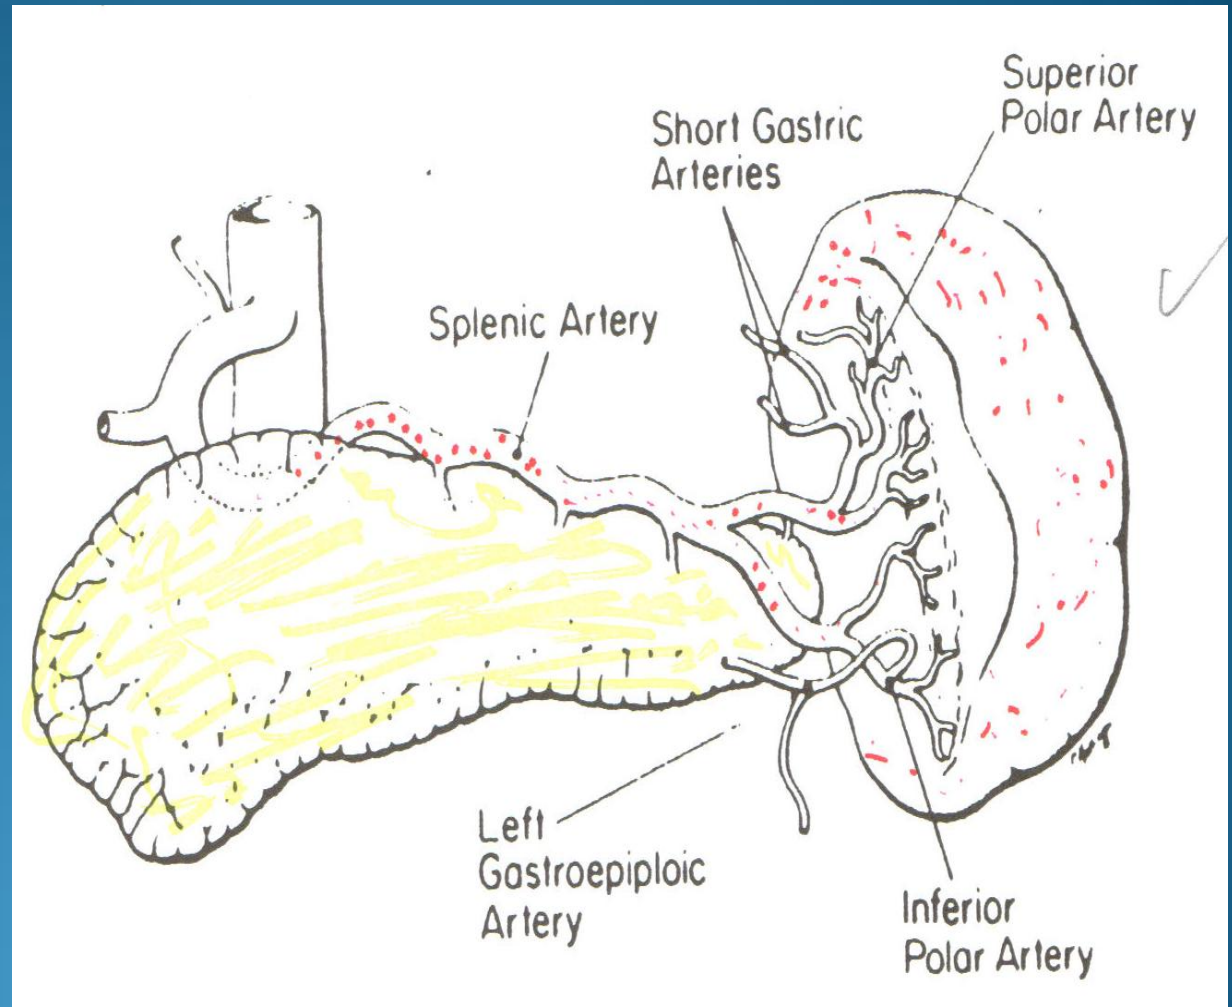 Superior
Polar Artery
Short Gastric
Arteries
Splenic Artery
Left
Gastroepiploic
Artery
Inferior
Polar Artery